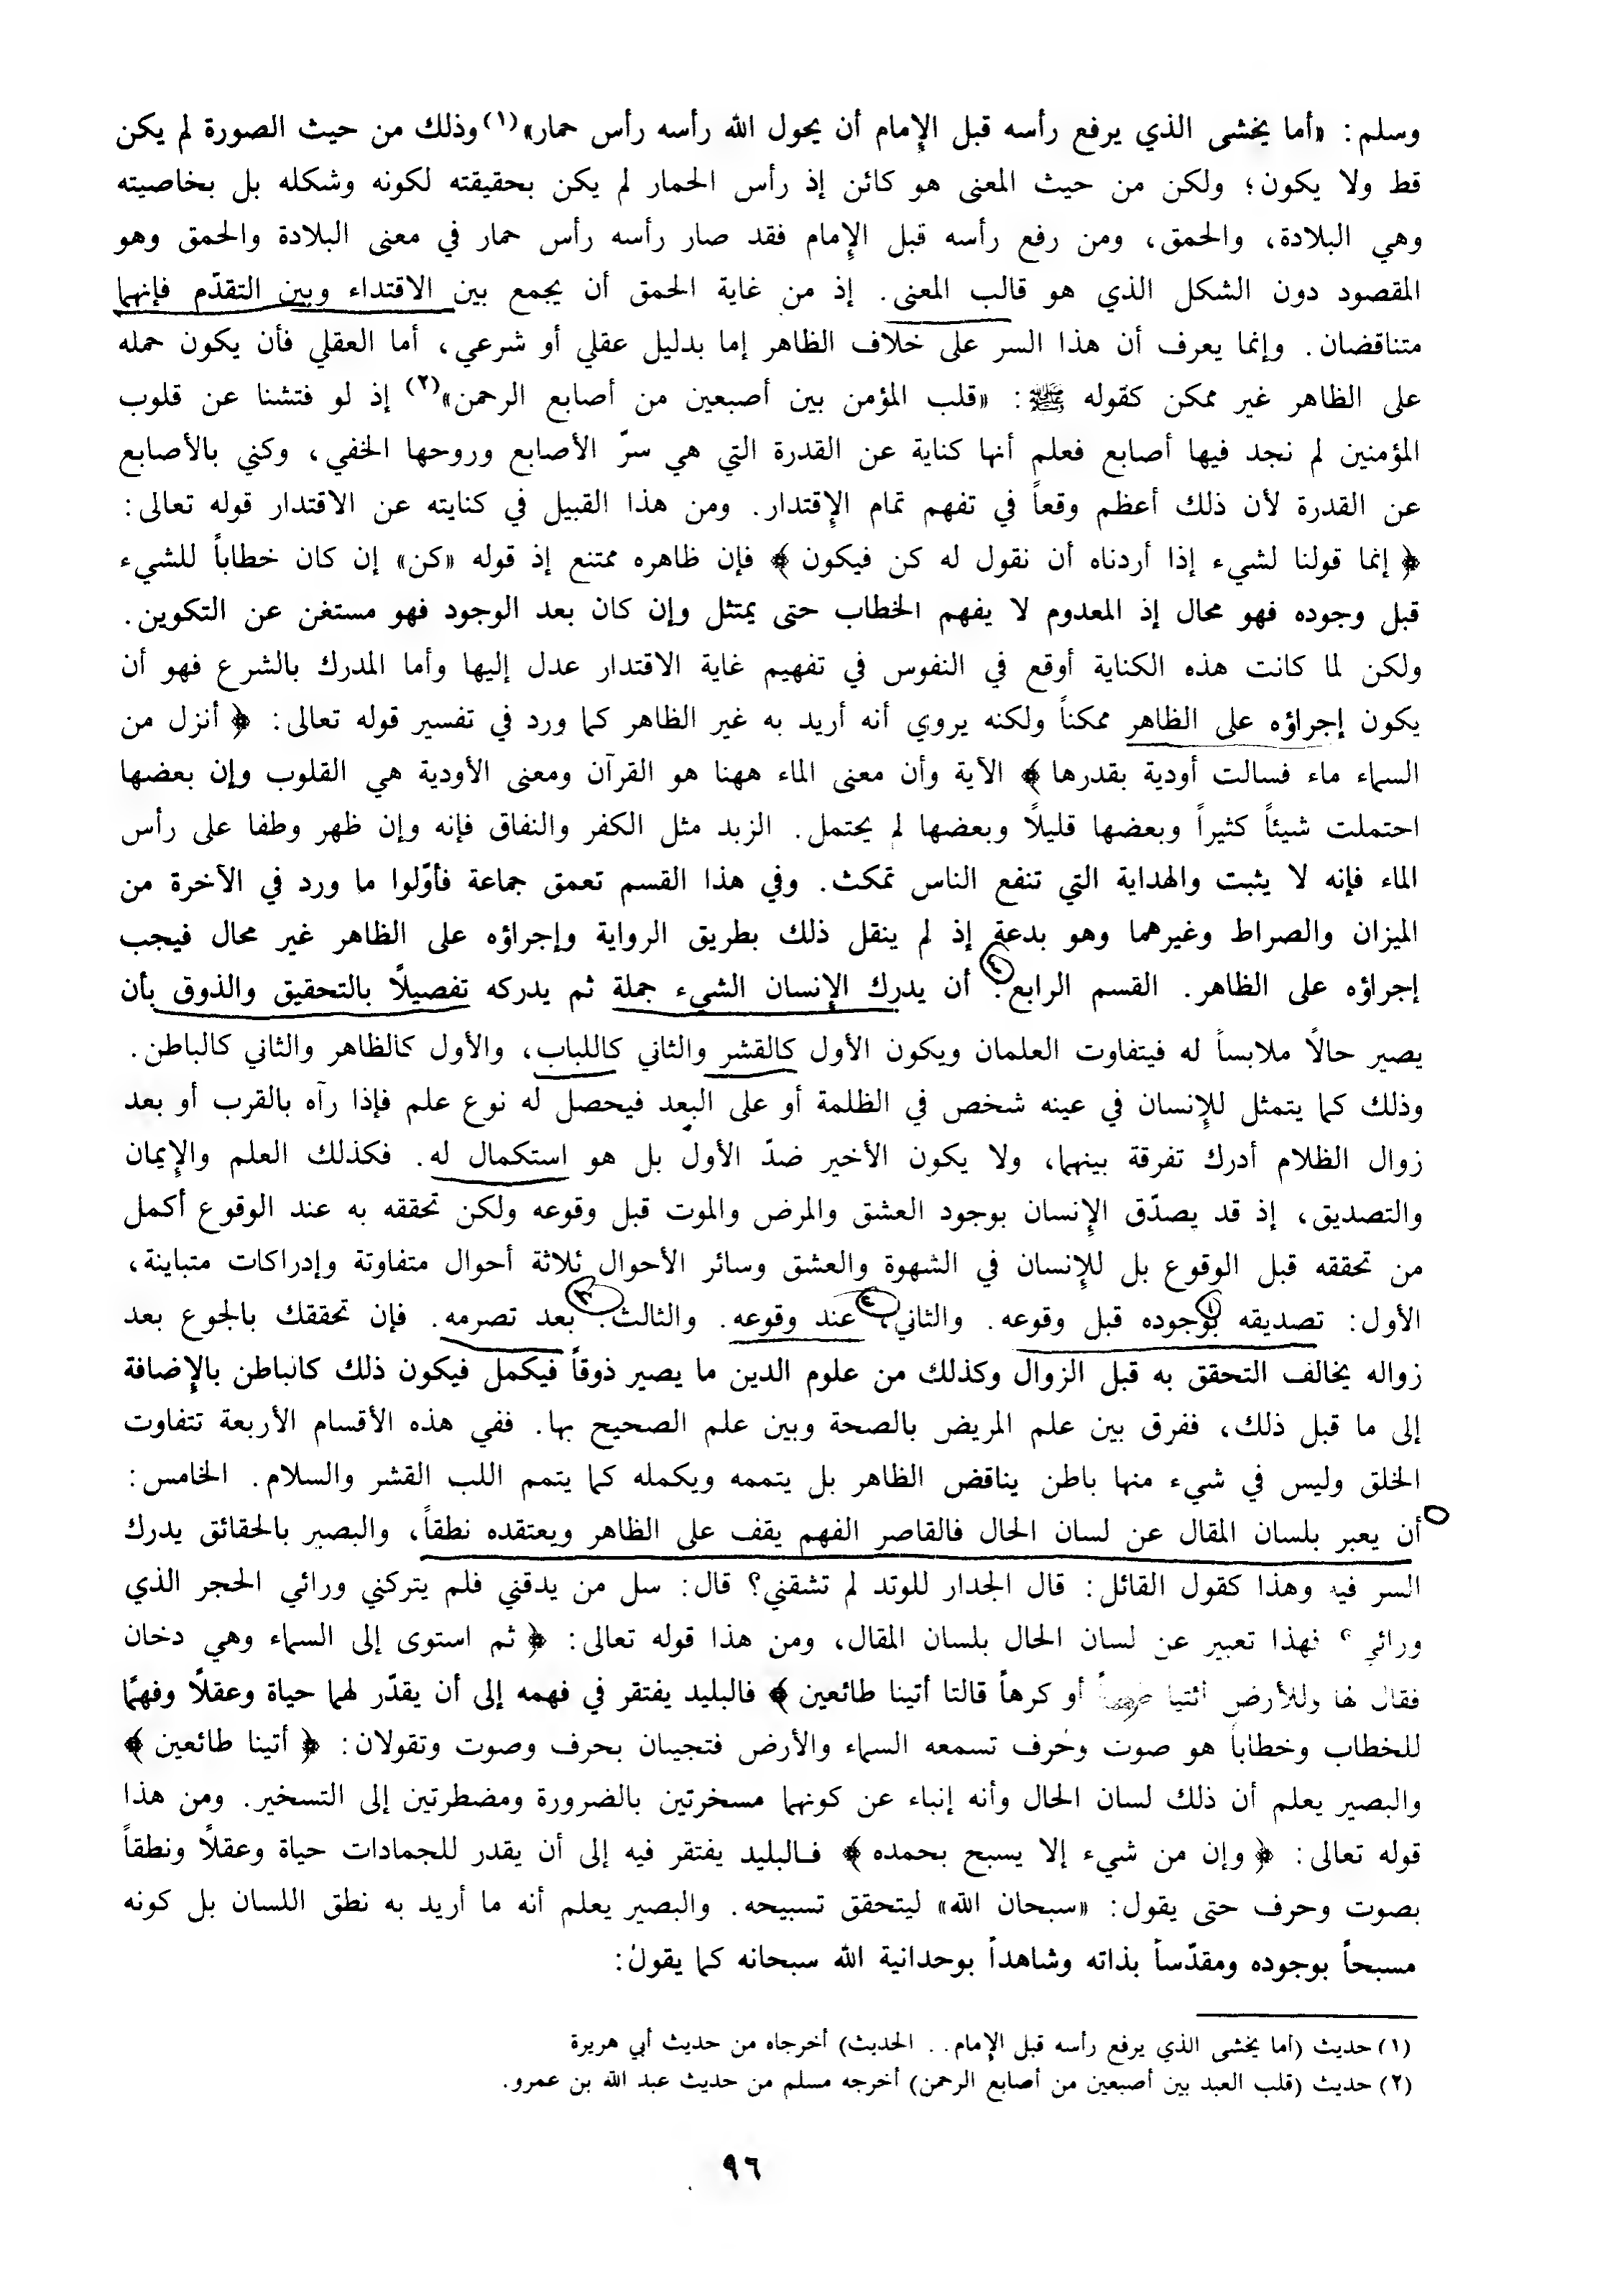 وسلم: «أما يخشى الذي يرفع رأسه قبل الإمام أن يحول الله رأسه رأس حمار»(١) وذلك من حيث الصورة لم يكن
قط ولا يكون؛ ولكن من حيث المعنى هو كائن إذ رأس الحمار لم يكن بحقيقته لكونه وشكله بل بخاصيته
وهي البلادة، والحمق، ومن رفع رأسه قبل الإمام فقد صار رأسه رأس حمار في معنى البلادة والحمق وهو
المقصود دون الشكل الذي هو قالب المعنى. إذ من غاية الحمق أن يجمع بين الاقتداء وبين التقدّم فإنهما
متناقضان. وإنما يعرف أن هذا السر على خلاف الظاهر إما بدليل عقلي أو شرعي، أما العقلي فأن يكون حمله
على الظاهر غير ممكن كقوله ﷺ: «قلب المؤمن بين أصبعين من أصابع الرحمن»(٢) إذ لو فتشنا عن قلوب
المؤمنين لم نجد فيها أصابع فعلم أنها كناية عن القدرة التي هي سرّ الأصابع وروحها الخفي، وكني بالأصابع
عن القدرة لأن ذلك أعظم وقعاً في تفهم تمام الإقتدار. ومن هذا القبيل في كنايته عن الاقتدار قوله تعالى:
﴿ إنما قولنا لشيء إذا أردناه أن نقول له كن فيكون ﴾ فإن ظاهره ممتنع إذ قوله «كن» إن كان خطاباً للشيء
قبل وجوده فهو محال إذ المعدوم لا يفهم الخطاب حتى يمتثل وإن كان بعد الوجود فهو مستغن عن التكوين.
ولكن لما كانت هذه الكناية أوقع في النفوس في تفهيم غاية الاقتدار عدل إليها وأما المدرك بالشرع فهو أن
يكون إجراؤه على الظاهر ممكناً ولكنه يروي أنه أريد به غير الظاهر كما ورد في تفسير قوله تعالى: ﴿ أنزل من
السماء ماء فسالت أودية بقدرها ﴾ الآية وأن معنى الماء ههنا هو القرآن ومعنى الأودية هي القلوب وإن بعضها
احتملت شيئاً كثيراً وبعضها قليلاً وبعضها لم يحتمل. الزبد مثل الكفر والنفاق فإنه وإن ظهر وطفا على رأس
الماء فإنه لا يثبت والهداية التي تنفع الناس تمكث. وفي هذا القسم تعمق جماعة فأوّلوا ما ورد في الآخرة من
الميزان والصراط وغيرهما وهو بدعة إذ لم ينقل ذلك بطريق الرواية وإجراؤه على الظاهر غير محال فيجب
إجراؤه على الظاهر. القسم الرابع: أن يدرك الإنسان الشيء جملة ثم يدركه تفصيلاً بالتحقيق والذوق بأن
يصير حالاً ملابساً له فيتفاوت العلمان ويكون الأول كالقشر والثاني كاللباب، والأول كالظاهر والثاني كالباطن.
وذلك كما يتمثل للإنسان في عينه شخص في الظلمة أو على البعد فيحصل له نوع علم فإذا رآه بالقرب أو بعد
زوال الظلام أدرك تفرقة بينهما، ولا يكون الأخير ضدّ الأول بل هو استكمال له. فكذلك العلم والإيمان
والتصديق، إذ قد يصدّق الإنسان بوجود العشق والمرض والموت قبل وقوعه ولكن تحققه به عند الوقوع أكمل
من تحققه قبل الوقوع بل للإنسان في الشهوة والعشق وسائر الأحوال ثلاثة أحوال متفاوتة وإدراكات متباينة،
الأول: تصديقه بوجوده قبل وقوعه. والثاني: عند وقوعه. والثالث: بعد تصرمه. فإن تحققك بالجوع بعد
زواله يخالف التحقق به قبل الزوال وكذلك من علوم الدين ما يصير ذوقاً فيكمل فيكون ذلك كالباطن بالإضافة
إلى ما قبل ذلك، ففرق بين علم المريض بالصحة وبين علم الصحيح بها. ففي هذه الأقسام الأربعة تتفاوت
الخلق وليس في شيء منها باطن يناقض الظاهر بل يتممه ويكمله كما يتمم اللب القشر والسلام. الخامس:
أن يعبر بلسان المقال عن لسان الحال فالقاصر الفهم يقف على الظاهر ويعتقده نطقاً، والبصير بالحقائق يدرك
السر فيه وهذا كقول القائل: قال الجدار للوتد لم تشقني؟ قال: سل من يدقني فلم يتركني ورائي الحجر الذي
ورائي فهذا تعبير عن لسان الحال بلسان المقال، ومن هذا قوله تعالى: ﴿ ثم استوى إلى السماء وهي دخان
فقال لها وللأرض ائتيا طوعاً أو كرهاً قالتا أتينا طائعين ﴾ فالبليد يفتقر في فهمه إلى أن يقدّر لهما حياة وعقلاً وفهمًا
للخطاب وخطاباً هو صوت وحرف تسمعه السماء والأرض فتجيبان بحرف وصوت وتقولان: ﴿ أتينا طائعين ﴾
والبصير يعلم أن ذلك لسان الحال وأنه إنباء عن كونهما مسخرتين بالضرورة ومضطرتين إلى التسخير. ومن هذا
قوله تعالى: ﴿ وإن من شيء إلا يسبح بحمده ﴾ فالبليد يفتقر فيه إلى أن يقدر للجمادات حياة وعقلاً ونطقاً
بصوت وحرف حتى يقول: «سبحان الله» ليتحقق تسبيحه. والبصير يعلم أنه ما أريد به نطق اللسان بل كونه
مسبحاً بوجوده ومقدّساً بذاته وشاهداً بوحدانية الله سبحانه كما يقول:
(١) حديث (أما يخشى الذي يرفع رأسه قبل الإمام.. الحديث) أخرجاه من حديث أبي هريرة
(٢) حديث (قلب العبد بين أصبعين من أصابع الرحمن) أخرجه مسلم من حديث عبد الله بن عمرو.
٩٦